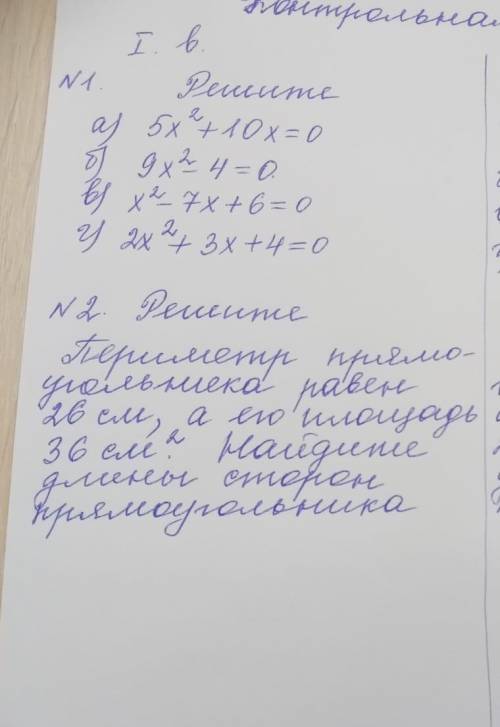 Контрольная
I. в.
№1. Решите
а) 5x²+10x=0
б) 9x²-4=0.
в) x²-7x+6=0
г) 2x²+3x+4=0
№2. Решите
Периметр прямо-
угольника равен
26 см, а его площадь
36 см². Найдите
длины сторон
прямоугольника